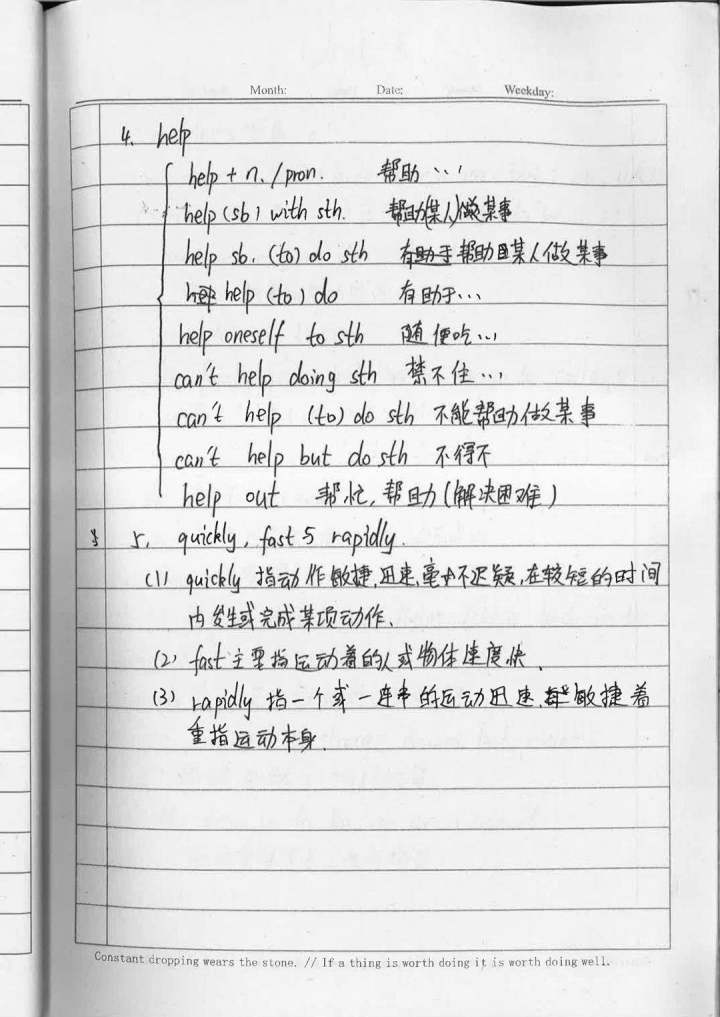 Month: Date: Weekday:
4. help
help + n. / pron. 帮助…
help (sb) with sth. 帮助(某人)做某事
help sb. (to) do sth 帮助某人做某事
help (to) do 有助于…
help oneself to sth 随便吃…
can't help doing sth 禁不住…
can't help (to) do sth 不能帮助做某事
can't help but do sth 不得不
help out 帮忙,帮助(解决困难)
5. quickly, fast 5 rapidly.
(1) quickly 指动作敏捷,迅速,毫不迟疑,在较短的时间
内发生或完成某项动作.
(2) fast 主要指运动着的人或物体速度快.
(3) rapidly 指一个或一连串的运动迅速,敏捷着
重指运动本身.
Constant dropping wears the stone. // If a thing is worth doing it is worth doing well.